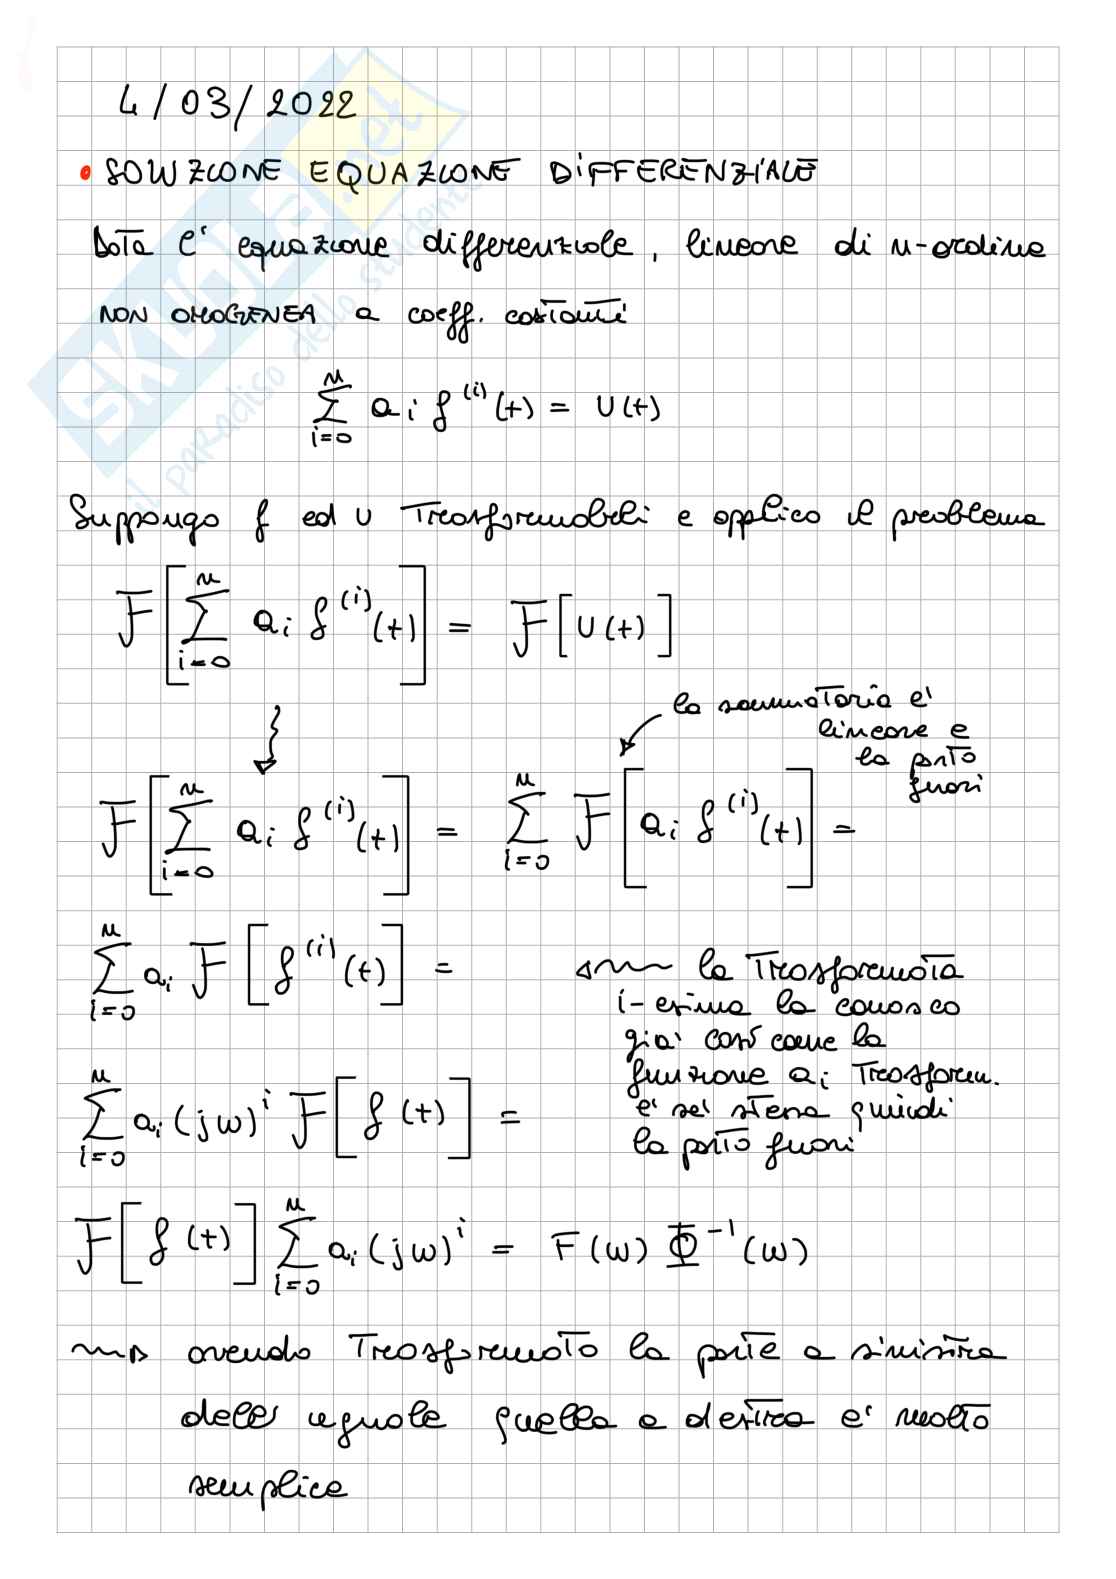 4/03/2022
• SOLUZIONE EQUAZIONE DIFFERENZIALE
Data l' equazione differenziale, lineare di n-ordine
NON OMOGENEA a coeff. costanti
∑_{i=0}^{n} a_i f^{(i)}(t) = U(t)
Suppongo f ed U Trasformabili e applico il problema
F[∑_{i=0}^{n} a_i f^{(i)}(t)] = F[U(t)]
la sommatoria e'
lineare e
la porto
fuori
F[∑_{i=0}^{n} a_i f^{(i)}(t)] = ∑_{i=0}^{n} F[a_i f^{(i)}(t)] =
∑_{i=0}^{n} a_i F[f^{(i)}(t)] =
la Trasformata
i-esima la conosco
gia' così come la
funzione a_i Trasform.
e' se' stessa quindi
la porto fuori
∑_{i=0}^{n} a_i (jω)^i F[f(t)] =
F[f(t)] ∑_{i=0}^{n} a_i (jω)^i = F(ω) Φ^{-1}(ω)
avendo Trasformato la parte a sinistra
dell' uguale quella a destra e' molto
semplice
SKUOLA.net
il paradiso dello studente